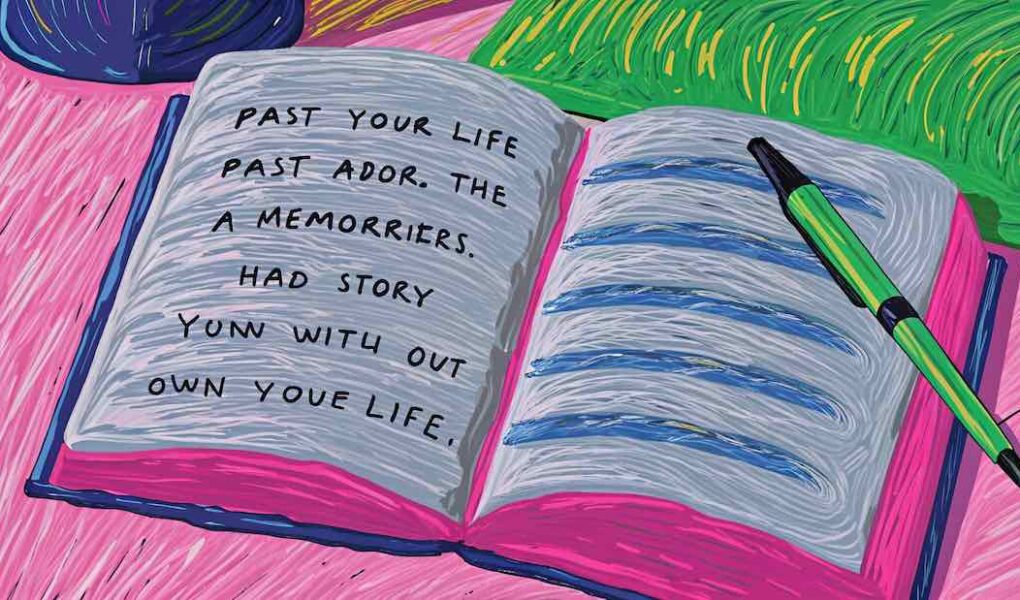 PAST YOUR LIFE
PAST ADOR. THE
A MEMORRIERS.
HAD STORY
YUNN WITH OUT
OWN YOUE LIFE.